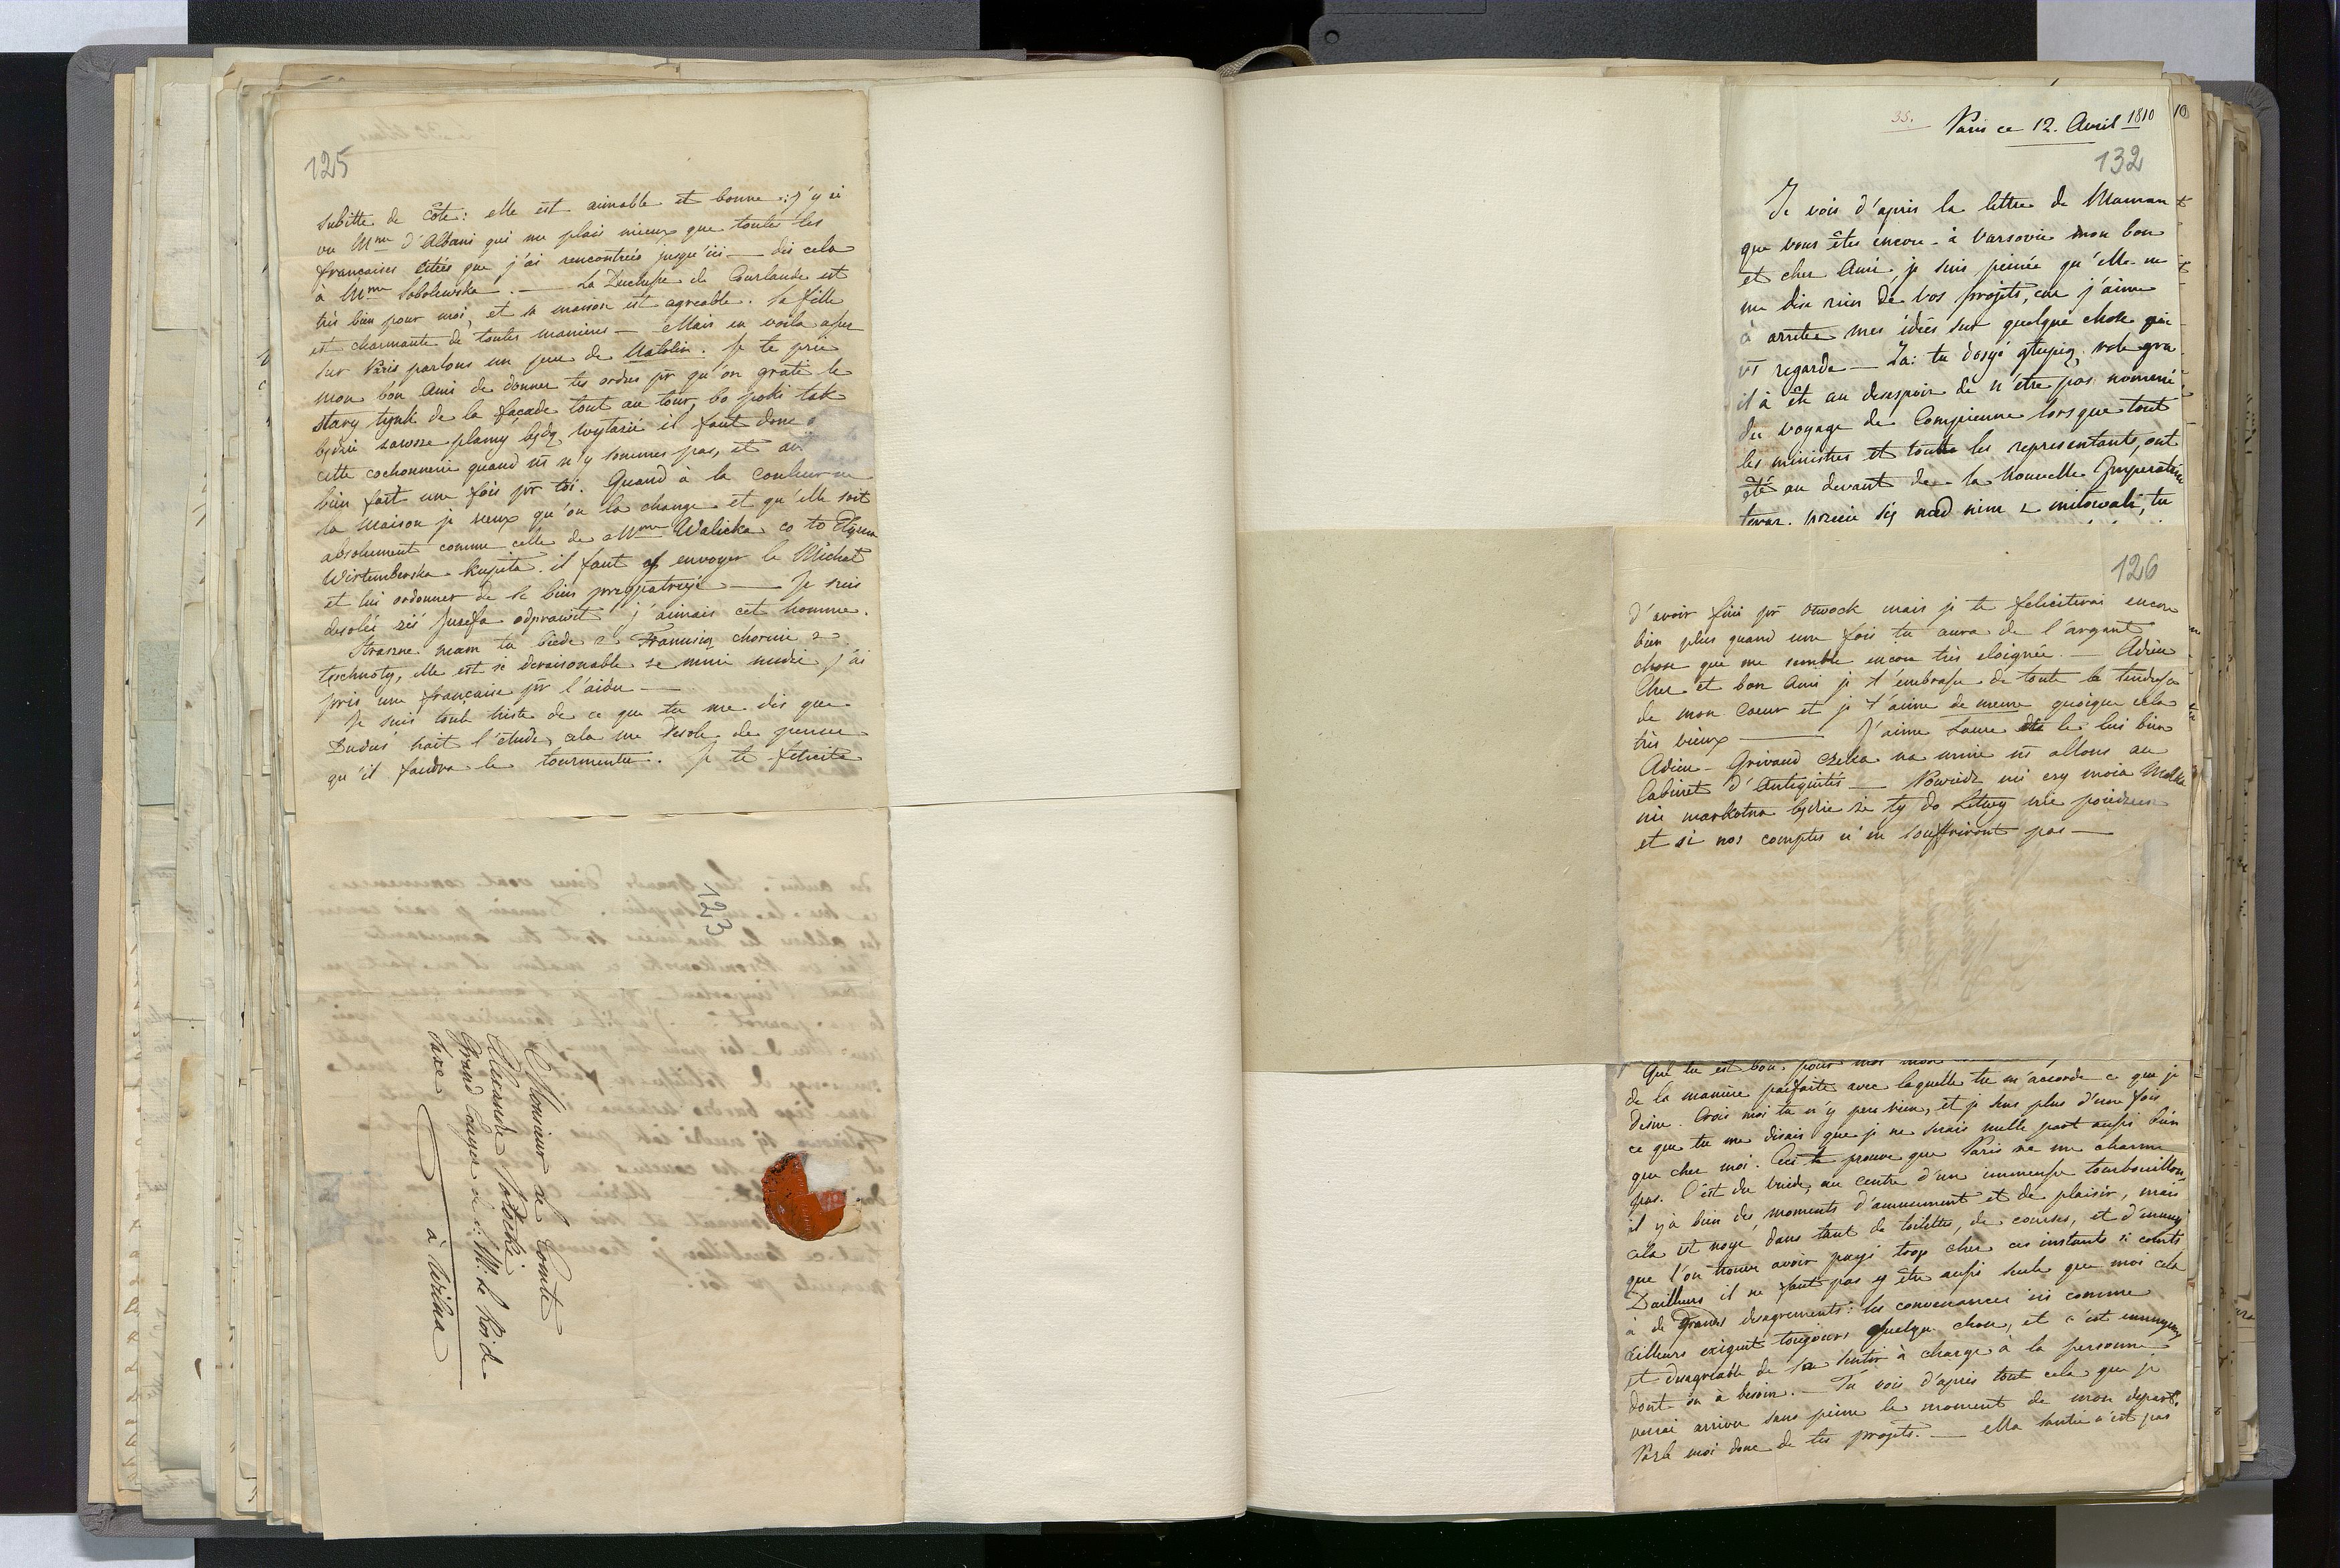 125
subitte de côté: elle est aimable et bonne: j'y ai
vu Mme d'Albani qui me plais mieux que toutes les
françaises citées que j'ai rencontrées jusqu'ici — dis cela
à Mme Sobolewska. — La Duchesse de Courlande est
très bien pour moi, et sa maison est agreable. Sa fille
est charmante de toutes manieres — Mais en voila assez
sur Paris parlons un peu de Natolin. Je te prie
mon bon Ami de donner tes ordres pr qu'on grate le
stary tynk de la façade tout au tour, bo poki tak
będzie zawsze plamy będą wytazic il faut donc
cette cochonnerie quand ns n'y sommes pas, et
bien fait une fois pr toi. Quand à la couleur de
la Maison je veux qu'on la change et qu'elle soit
absolument comme celle de Mme Walicka co to Xżna
Wirtemberska kupita. il faut y envoyer le Michał
et lui ordonner de se bien przypatrzyć — Je suis
desolée żeś Jozefa odprawił j'aimais cet homme.
Straszne mam tu biede z Franusią choruie z
tęschnoty, elle est si deraisonable że mnie nudzi j'ai
pris une française pr l'aider —
Je suis toute triste de ce que tu me dis que
Dudus hait l'étude, cela me desole de penser
qu'il faudra le tourmenter. Je te felicite
123
Monsieur le Comte
Alexandre Potocki
Grand Ecuyer de S: M: le Roi de
Saxe
à Wilna
33.
Paris ce 12. Avril 1810
10
132
Je vois d'après la lettre de Maman
que vous êtes encore à Varsovie mon bon
et cher Ami, je suis peinée qu'elle ne
me dise rien de vos projets, car j'aime
à arrêter mes idées sur quelque chose qui
vs regarde — Za: tu dosyć głupią role gra
il à été au desespoir de n'être pas nommé
du voyage de Compienne lorsque tout
les ministres et toute les representants, ont
été au devant de la Nouvelle Imperatrice
nad nim z
126
d'avoir fini pr Otwock mais je te feliciterai encore
bien plus quand une fois tu aura de l'argant
chose que me semble encore très eloignée. — Adieu
Cher et bon Ami je t'embrasse de toute la tendresse
de mon coeur et je t'aime de meme quoique cela
très vieux — J'aime Laure dis le lui bien
Adieu — Grivaud czeka na mnie ns allons au
Cabinet d'Antiquités — Powiedz mi czy moia Matka
nie markotna będzie że ty do Litwy nie poiedziesz
et si nos comptes n'en souffriront pas —
Que tu est bon pour moi mon
de la manière parfaite avec laquelle tu m'accorde ce que je
desire. Crois moi tu n'y pers rien, et je sens plus d'une fois
ce que tu me disais que je ne serais nulle part aussi bien
que chez moi. Ceci te prouve que Paris ne me charme
pas. C'est du vuide, au centre d'un immense tourbouillon,
il y à bien des moments d'amusement et de plaisir, mais
cela est noyé dans tant de toilettes, de courses, et d'ennuy
que l'on trouve avoir payé trop cher ces instants si courts
Dailleurs il ne faut pas y être aussi seule que moi cela
à de grands desagrements: les convenances ici comme
ailleurs exigent toujours quelque chose, et c'est ennuyeux
et desagréable de se sentir à charge à la personne
dont on à besoin. — Tu vois d'après tout cela que je
verrai arriver sans peine le moment de mon depart.
Parle moi donc de tes projets. — Ma santé n'est pas